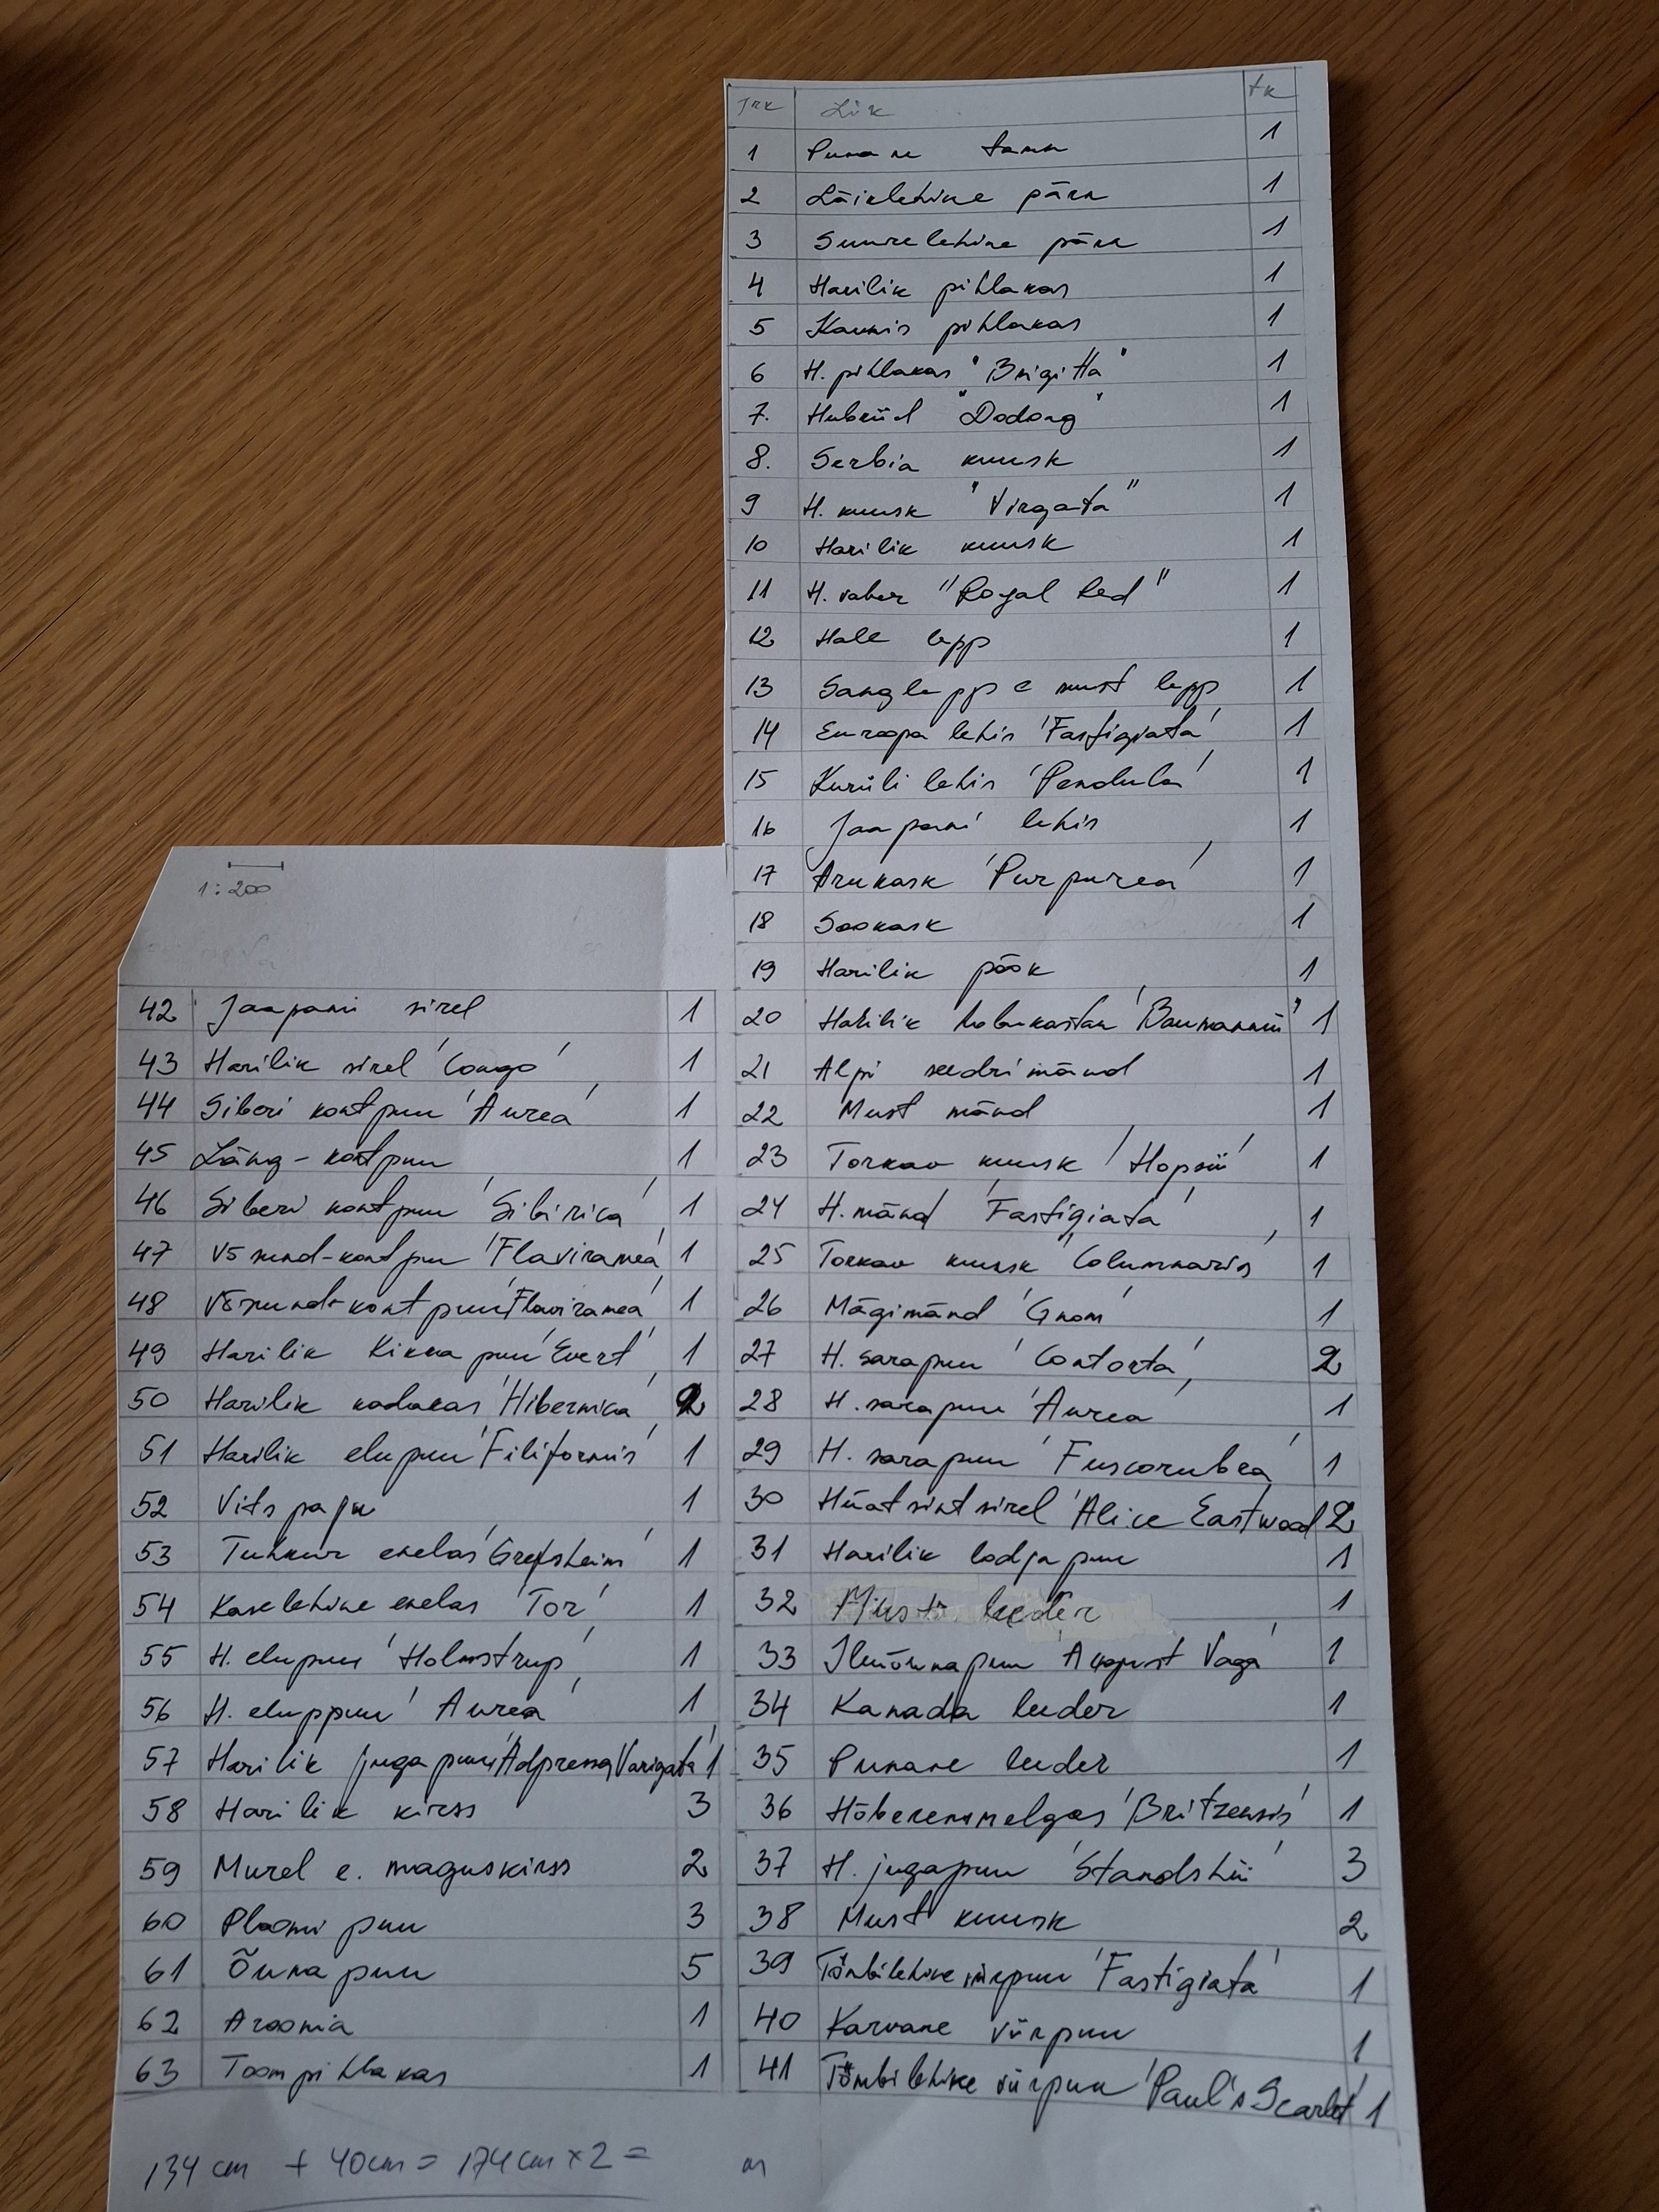 Trk Liik tk
1 Punane tamm 1
2 Läiklehine pärn 1
3 Suurelehine pärn 1
4 Harilik pihlakas 1
5 Kaunis pihlakas 1
6 H. pihlakas "Brigitta" 1
7. Hübriid "Dodong" 1
8. Serbia kuusk 1
9 H. kuusk "Virgata" 1
10 Harilik kuusk 1
11 H. vaher "Royal Red" 1
12 Hall lepp 1
13 Sanglepp e must lepp 1
14 Euroopa lehis 'Fastigiata' 1
15 Kuriili lehis 'Pendula' 1
16 Jaapani lehis 1
17 Arukask 'Purpurea' 1
18 Sookask 1
19 Harilik pöök 1
20 Harilik hobukastan 'Baumannii" 1
21 Alpi seedrimänd 1
22 Must mänd 1
23 Torkav kuusk 'Hopsii' 1
24 H. mänd 'Fastigiata' 1
25 Torkav kuusk 'Columnaris' 1
26 Mägimänd 'Gnom' 1
27 H. sarapuu 'Contorta' 2
28 H. sarapuu 'Aurea' 1
29 H. sarapuu 'Fuscorubra' 1
30 Hüatsintsirel 'Alice Eastwood 2
31 Harilik lodjapuu 1
32 Must leeder 1
33 Iluõunapuu 'August Vaga' 1
34 Kanada leeder 1
35 Punane leeder 1
36 Hõberemmelgas 'Britzensis' 1
37 H. jugapuu 'Standishii' 3
38 Must kuusk 2
39 Tömbilehine viirpuu 'Fastigiata' 1
40 Karvane viirpuu 1
41 Tömbilehine viirpuu 'Paul's Scarlet' 1
1:200
42 Jaapani sirel 1
43 Harilik sirel 'Congo' 1
44 Siberi kontpuu 'Aurea' 1
45 Läng-kontpuu 1
46 Siberi kontpuu 'Sibirica' 1
47 Võsund-kontpuu 'Flaviramea' 1
48 Võsund-kontpuu 'Flaviramea' 1
49 Harilik Kikkapuu 'Evert' 1
50 Harilik kadakas 'Hibernica' 2
51 Harilik elupuu 'Filiformis' 1
52 Vitspaju 1
53 Tuhkur enelas 'Grefsheim' 1
54 Kaselehine enelas 'Tor' 1
55 H. elupuu 'Holmstrup' 1
56 H. eluppuu 'Aurea' 1
57 Harilik jugapuu 'Adpressa Varigata' 1
58 Harilik kirss 3
59 Murel e. maguskirss 2
60 Ploomi puu 3
61 Õunapuu 5
62 Aroonia 1
63 Toompihlakas 1
134 cm + 40cm = 174cm x 2 = m